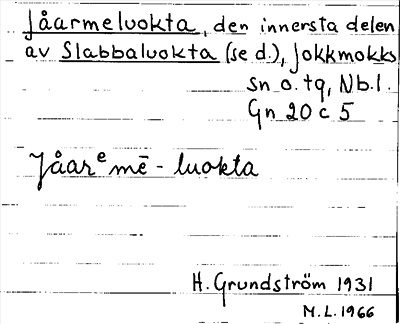 Jåarmeluokta, den innersta delen
av Slabbaluokta (se d.), Jokkmokks
sn o. tg, Nb.l.
Gn 20 c 5
Jåarᵉmē - luokta
H. Grundström 1931
M.L. 1966